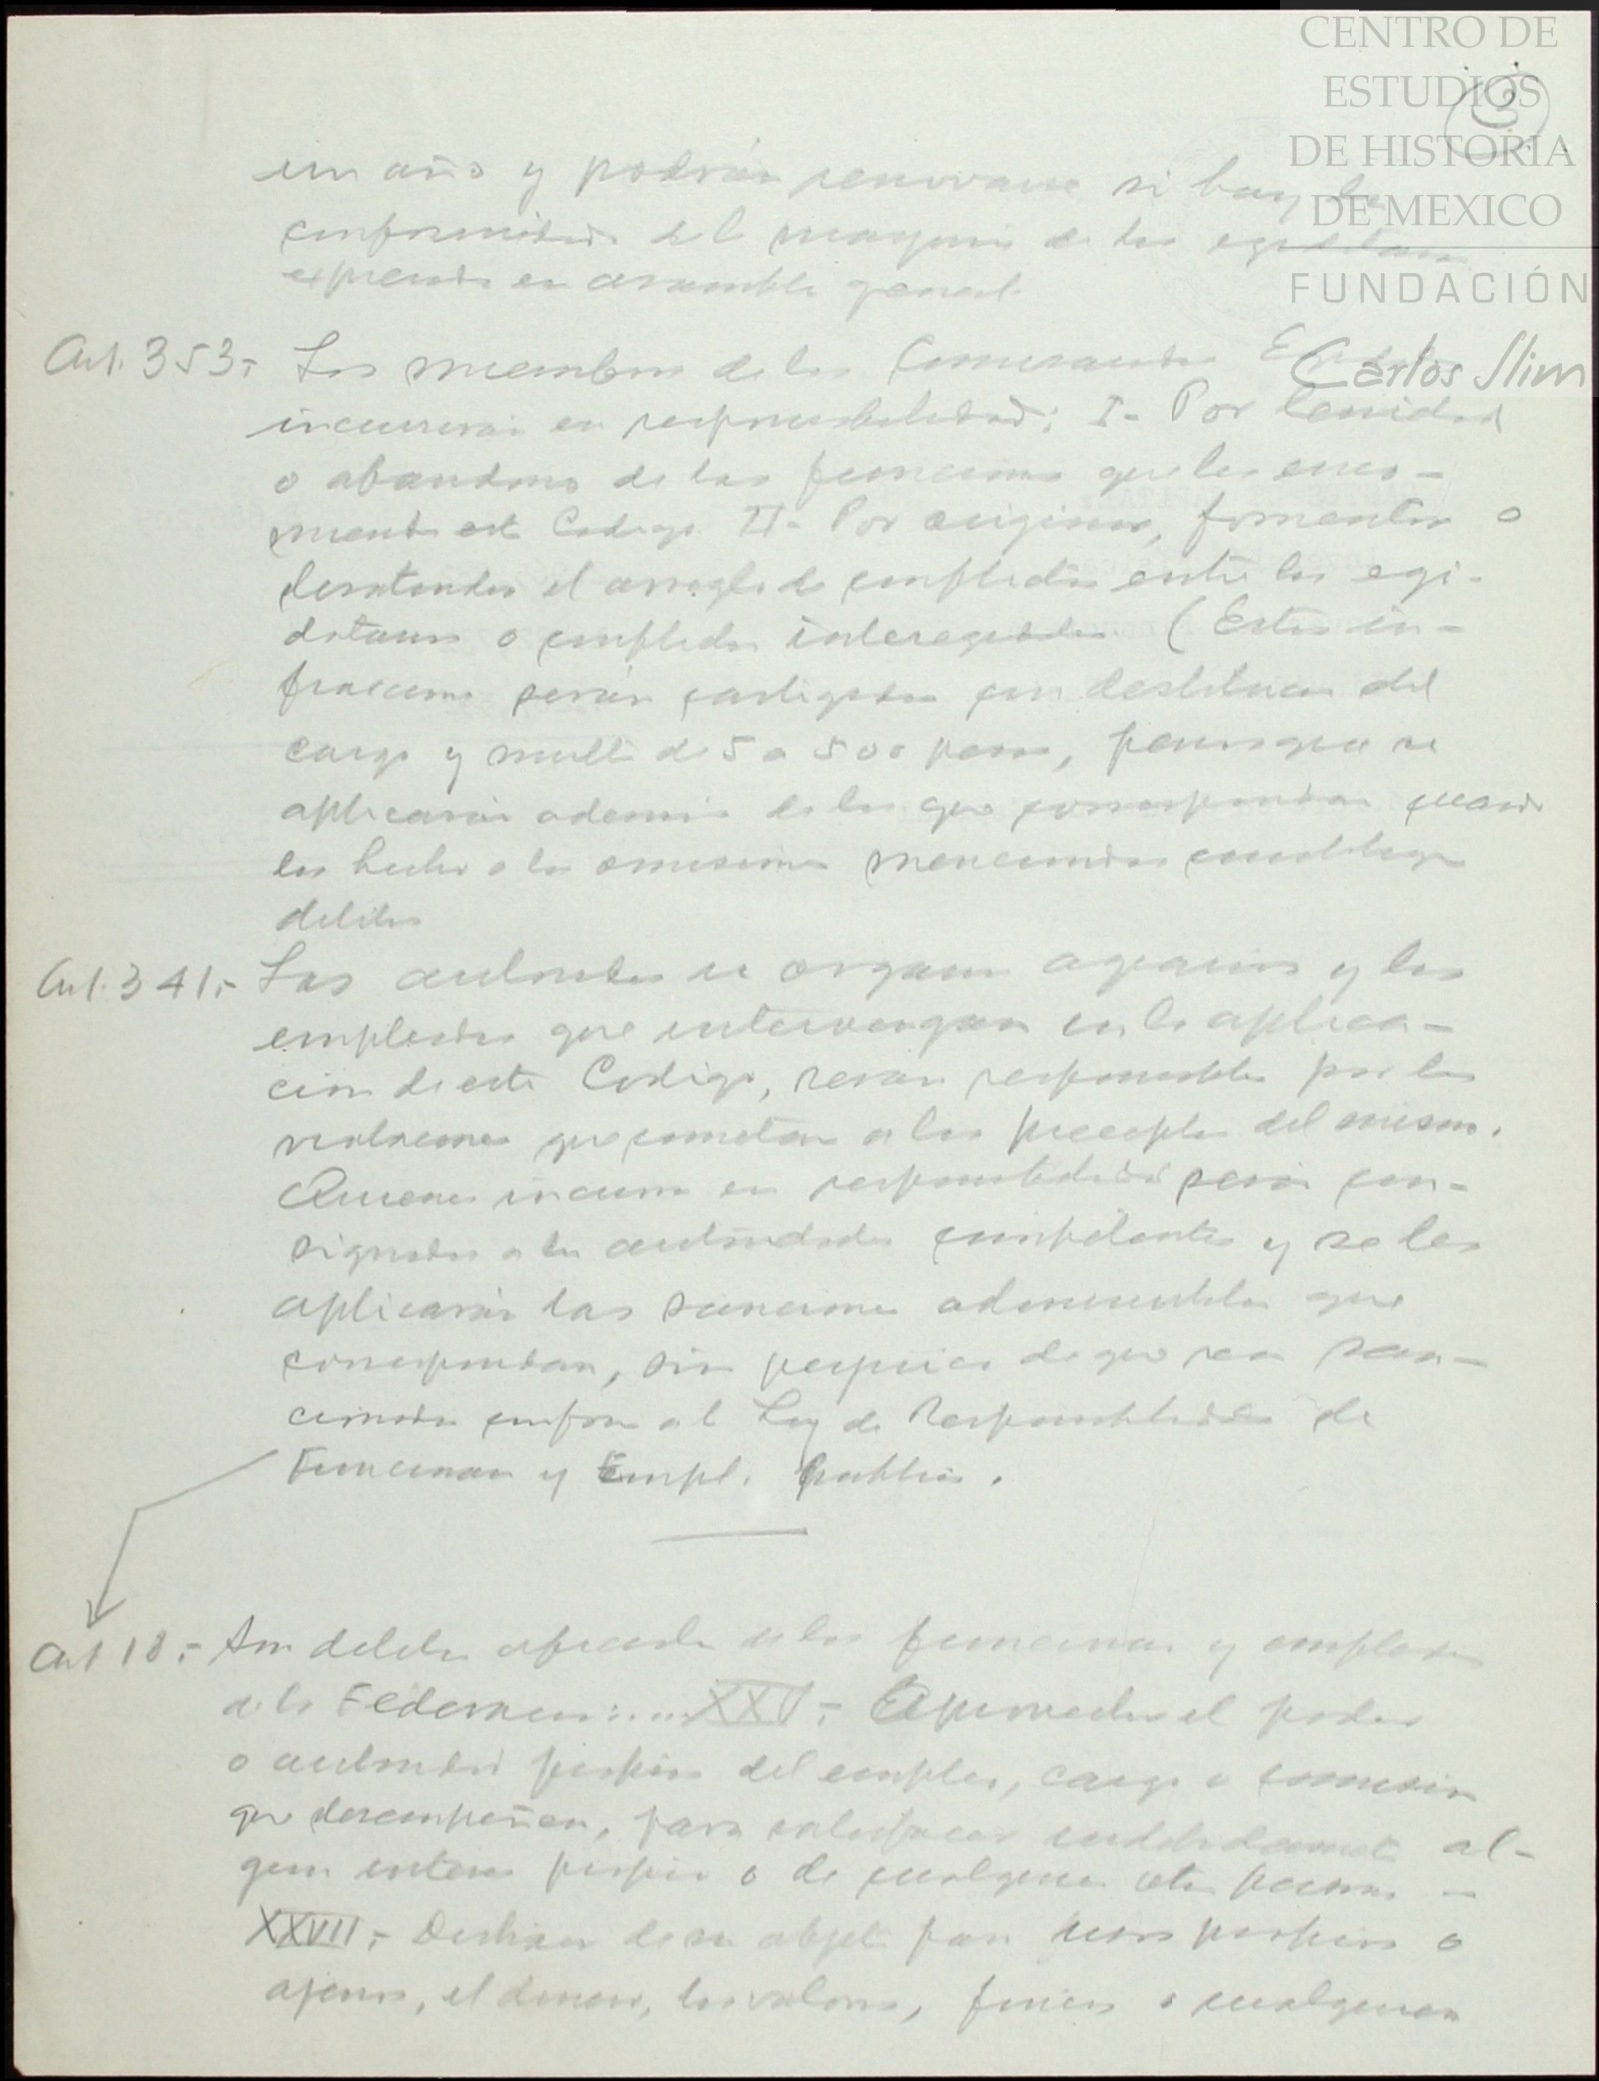 CENTRO DE
ESTUDIOS
DE HISTORIA
DE MEXICO
FUNDACIÓN
Carlos Slim
3
un año y podrán renovarse si hay la
conformidad del mayoria de los egidatarios
expresada en asamblea general
Art. 353.- Los miembros de los Comisariados E
incurrirán en responsabilidad: I- Por lenidad
o abandono de las funciones que les enco-
mienda este Codigo II- Por originar, fomentar o
desatender el arreglo de conflictos entre los egi-
datarios o conflictos interegidales (Estas in-
fracciones serán castigadas con destitucion del
cargo y multa de 5 a 500 pesos, penas que se
aplicarán además de las que correspondan cuando
los hechos o las omisiones mencionadas constituyan
delitos
Art. 341.- Las autoridades u organos agrarios y los
empleados que intervengan en la aplica-
cion de este Codigo, serán responsables por las
violaciones que cometan a los preceptos del mismo.
Quienes incurran en responsabilidad serán con-
signados a las autoridades competentes y se les
aplicarán las sanciones administrativas que
correspondan, sin perjuicio de que sean san-
cionados conforme a l Ley de Responsabilidades de
Funcionarios y Empl. Publicos.
Art 18.- Son delitos oficiales de los funcionarios y empleados
de la Federacion:... XXV.- Aprovechar el poder
o autoridad propios del empleo, cargo o comision
que desempeñan, para satisfacer indebidamente al-
gun interes propio o de cualquiera otra persona -
XXVII.- Distraer de su objeto para usos propios o
ajenos, el dinero, los valores, fincas o cualquiera